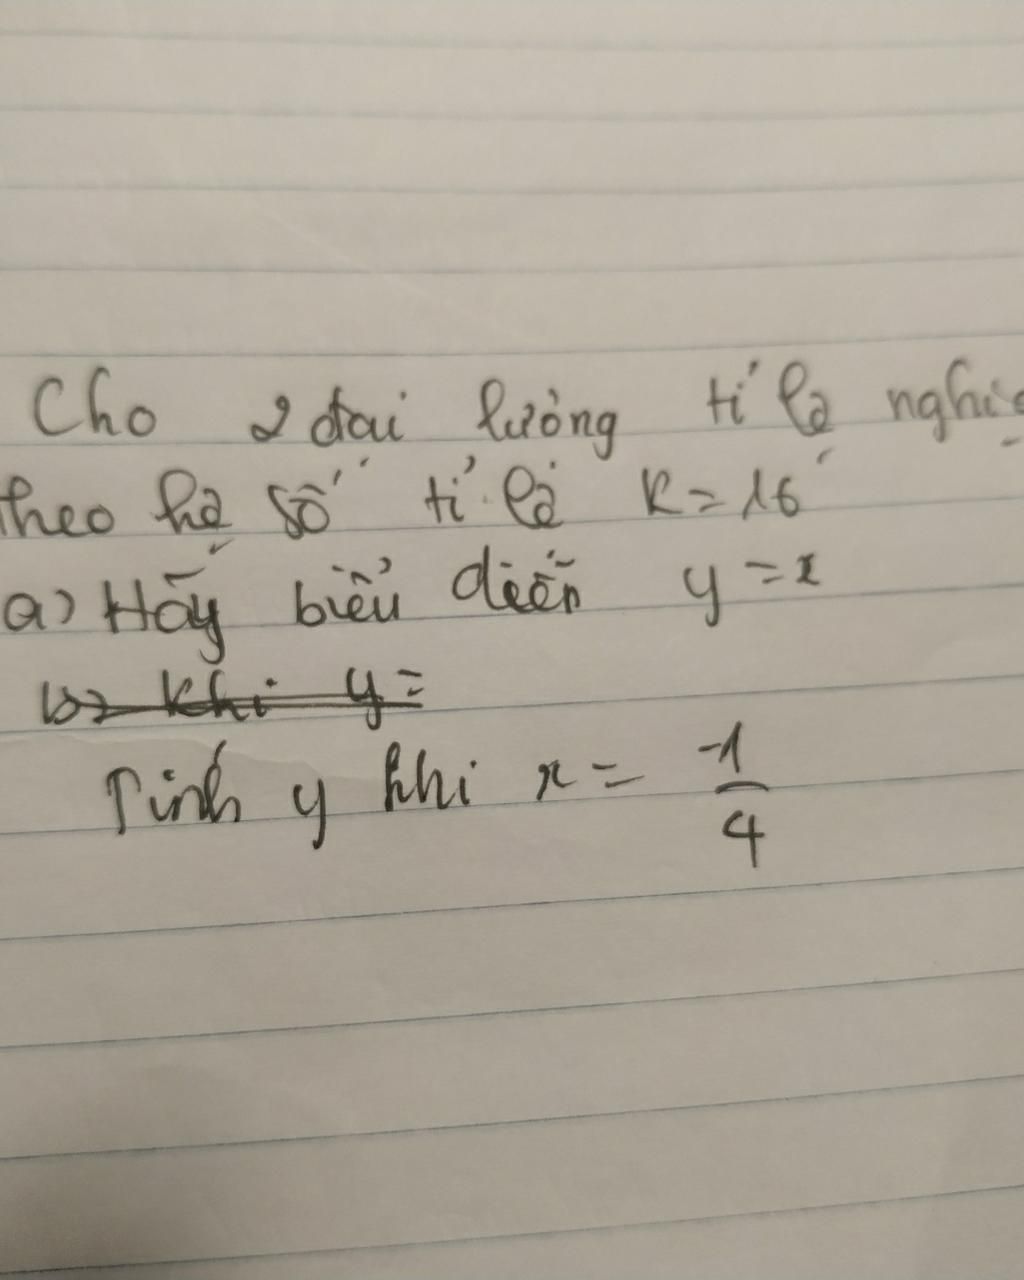 Cho 2 đại lượng tỉ lệ
theo hệ số tỉ lệ k = 16
a) Hãy biểu diễn y = x
b) Khi y =
Tính y khi x = -1/4